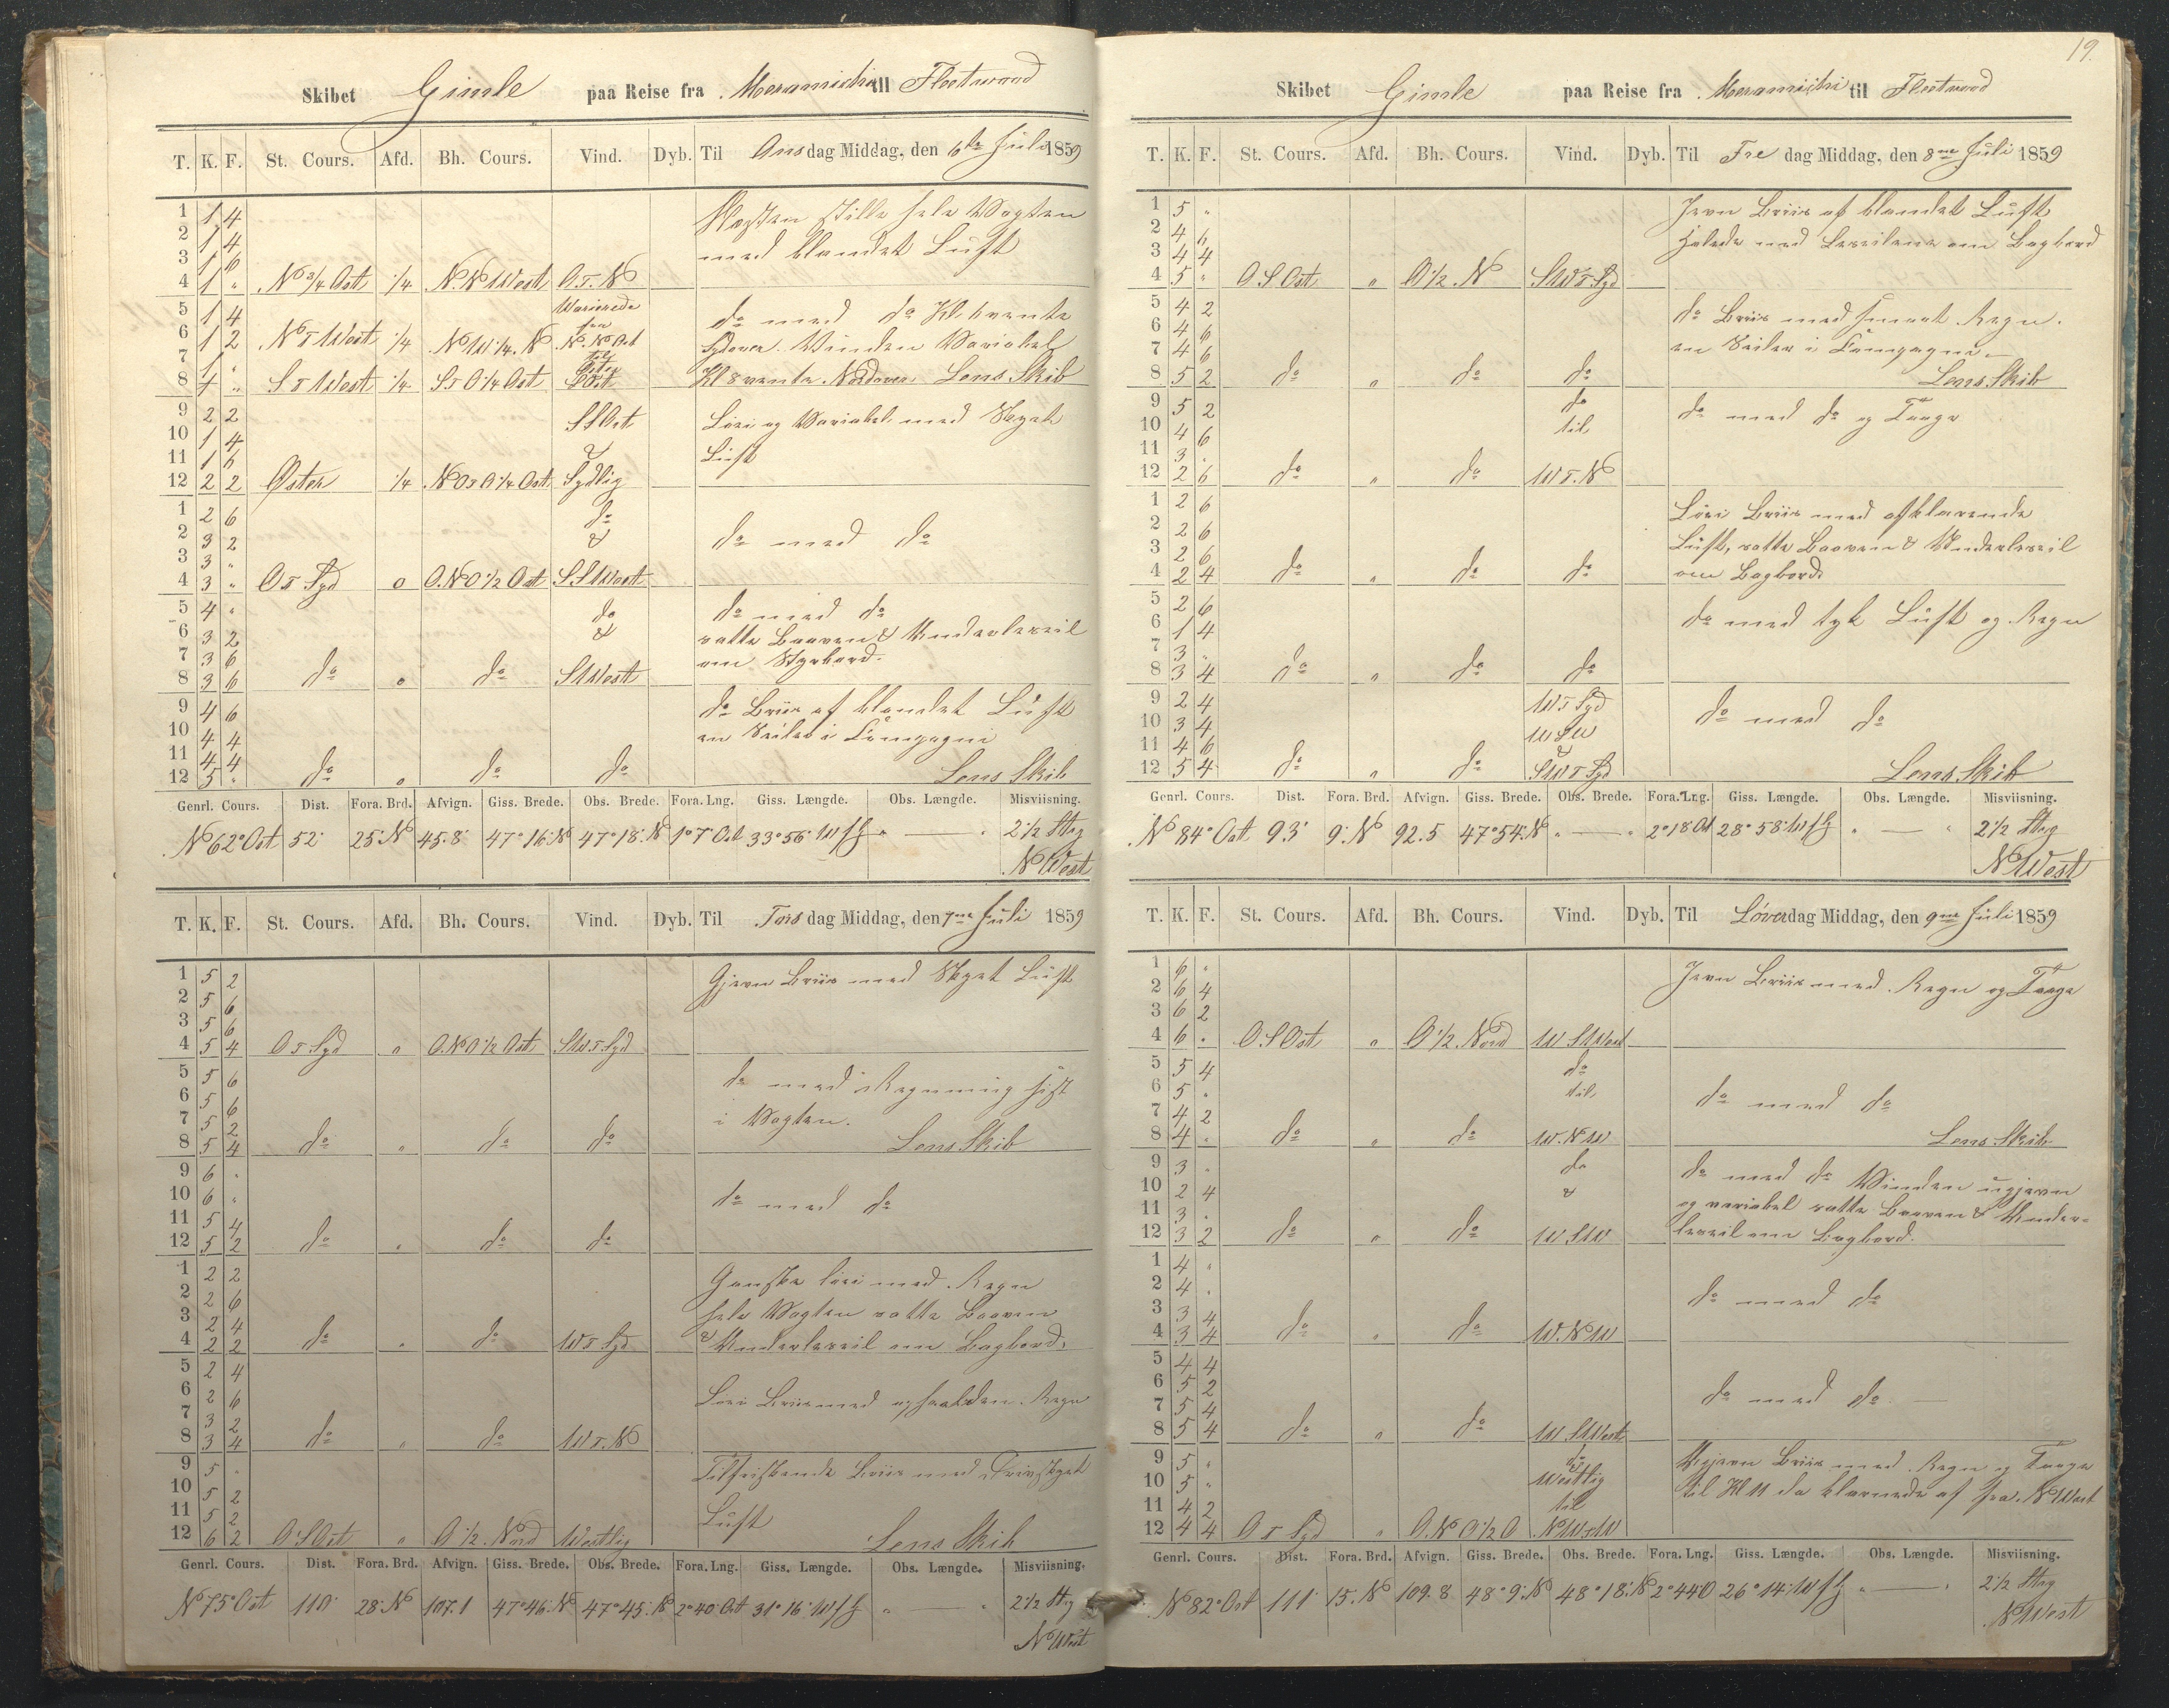 19.
Skibet Gimle paa Reise fra Meramichi til Fleetwood
T. K. F. St. Cours. Afd. Bh. Cours. Vind. Dyb. Til Onsdag Middag, den 6te Juli 1859
1 1 4 Næsten stille hele Vagten
2 1 4 med blandet Luft
3 1 6
4 1 " N 3/4 Ost 1/4 N.N West O.t.N
5 1 4 Varierede do med do Kl. 6 vente
6 1 2 N t West 1/4 N W 1/4 N fra N.N Ost Sydover. Vinden Variabel
7 1 " til
8 4 " S t West 1/4 S t O 1/4 Ost S Ost Kl 8 vente Nordover Lens Skib
9 2 2 S S Ost Løi og Variabel med Skyet
10 1 4 & Luft
11 1 6
12 2 2 Øster 1/4 N O t O 1/4 Ost Sydlig
1 2 6 do
2 3 2 & do med do
3 3 "
4 3 " O t Syd o O.N O 1/2 Ost S S West
5 4 " do do med do
6 3 2 & satte Boven & Underleseil
7 3 6 om Styrbord.
8 3 6 do o do S West
9 4 6 do Briis af blandet Luft
10 4 4 en Seiler i Compagni
11 4 4
12 5 " do o do do Lens Skib
Genrl. Cours. Dist. Fora. Brd. Afvign. Giss. Brede. Obs. Brede. Fora. Lng. Giss. Længde. Obs. Længde. Misviisning.
N 62° Ost 52' 25' N 45.8 47° 16' N 47° 18' N 1° 7' Ost 33° 56' W f G " — " 2 1/2 Streg
N West
T. K. F. St. Cours. Afd. Bh. Cours. Vind. Dyb. Til Torsdag Middag, den 7me Juli 1859
1 5 2 Gjevn Briis med Skyet Luft
2 5 6
3 5 6
4 5 4 O t Syd " O.N O 1/2 Ost S W t Syd
5 5 6 do med Regnning sist
6 5 6 i Vagten.
7 5 2
8 5 4 do " do do Lens Skib
9 6 "
10 6 " do med do
11 5 4
12 5 2 do " do do
1 2 2 Ganske løi med Regn
2 2 6 hele Vagten satte Boven
3 2 4 & Underleseil om Bagbord.
4 2 2 do " do W t Syd
5 2 4
6 2 6 Løi Briis med Regn
7 3 2
8 3 4 do " do W t. N
9 5 " Tilfriskende Briis med Drivskyet
10 5 2 Luft
11 5 2
12 6 2 O S Ost " O 1/2 Nord Westlig Lens Skib
Genrl. Cours. Dist. Fora. Brd. Afvign. Giss. Brede. Obs. Brede. Fora. Lng. Giss. Længde. Obs. Længde. Misviisning.
N 75° Ost 110' 28' N 107.1 47° 46' N 47° 45' N 2° 40' Ost 31° 16' W f G " — " 2 1/2 Streg
N West
Skibet Gimle paa Reise fra Meramichi til Fleetwood
T. K. F. St. Cours. Afd. Bh. Cours. Vind. Dyb. Til Fredag Middag, den 8me Juli 1859
1 5 " Jevn Briis af blandet Luft
2 4 6 seilede med Leseilene om Bagbord
3 4 4
4 5 " O S Ost " O 1/2 N S W t Syd
5 4 2 do Briis med smaat Regn.
6 4 6 en Seiler i Compagni
7 4 6
8 5 2 do " do do Lens Skib
9 5 2 do do med do og Taage
10 4 6 til
11 3 "
12 2 6 do " do W t. N
1 2 6 Løi Briis med afklarende
2 2 6 Luft, satte Boven & Underleseil
3 2 6 om Bagbord
4 2 4 do " do do
5 2 6 do med tyk Luft og Regn
6 1 4
7 3 "
8 3 4 do " do do
9 2 4 W t Syd
10 3 4 W S W do med do
11 4 6 &
12 5 4 do " do S W t Syd Lens Skib
Genrl. Cours. Dist. Fora. Brd. Afvign. Giss. Brede. Obs. Brede. Fora. Lng. Giss. Længde. Obs. Længde. Misviisning.
N 84° Ost 93' 9' N 92.5 47° 54' N " — " 2° 18' Ost 28° 58' W f G " — " 2 1/2 Streg
N West
T. K. F. St. Cours. Afd. Bh. Cours. Vind. Dyb. Til Løverdag Middag, den 9me Juli 1859
1 6 " Jevn Briis med Regn og Taage
2 6 4
3 6 2
4 6 " O.S Ost " O 1/2 Nord W S West
5 5 4 do
6 5 " til do med do
7 4 2
8 4 " do " do W. N W Lens Skib
9 3 " do do med do Vinden ugjevn
10 2 4 & og variabel satte Boven & Under-
11 3 " leseil om Bagbord.
12 3 2 do " do W S W
1 4 "
2 4 " do med do
3 3 4
4 3 4 do " do W. N W
5 4 4
6 5 2 do med do
7 5 4
8 5 4 do " do W S West
9 5 " do Ugjevn Briis med Regn og Taage
10 5 " Westlig til Kl 11 da klarnede af fra N West
11 4 2 til
12 4 4 O t Syd " O.N O 1/2 O N W t W
Genrl. Cours. Dist. Fora. Brd. Afvign. Giss. Brede. Obs. Brede. Fora. Lng. Giss. Længde. Obs. Længde. Misviisning.
N 82° Ost 111' 15' N 109.8 48° 9' N 48° 18' N 2° 44' O 26° 14' W f G " — " 2 1/2 Streg
N West